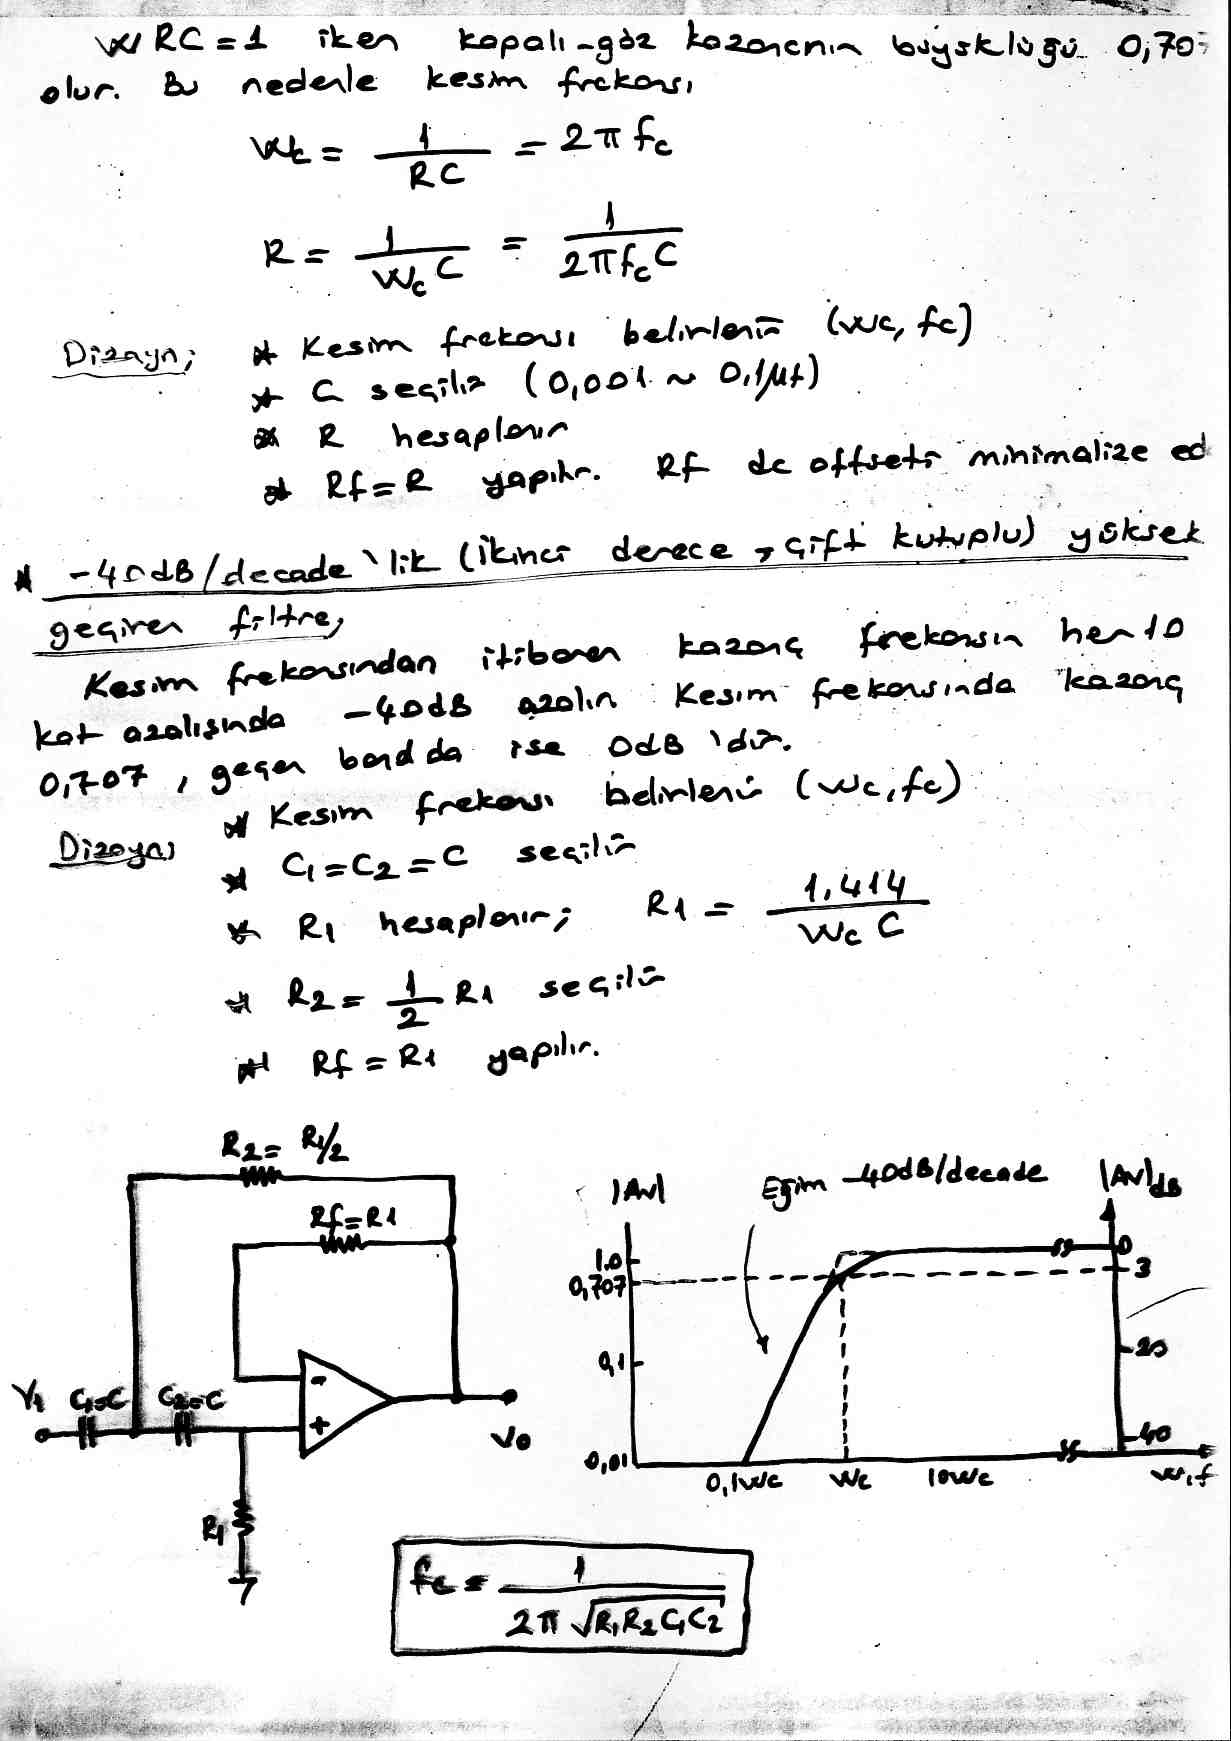 W RC = 1 iken kapalı-göz kazancının büyüklüğü 0,70
olur. Bu nedenle kesim frekansı
Wc = 1/RC = 2πfc
R = 1/(Wc C) = 1/(2πfc C)
Dizayn; * Kesim frekansı belirlenir (wc, fc)
* C seçilir (0,001 ~ 0,1μf)
* R hesaplanır
* Rf = R yapılır. Rf dc offseti minimalize ed
* -40dB/decade'lik (ikinci derece, çift kutuplu) yüksek
geçiren filtre;
Kesim frekansından itibaren kazanç frekansın her 10
kat azalışında -40dB azalır. Kesim frekansında kazanç
0,707, geçen bandda ise 0dB'dir.
Dizayn; * Kesim frekansı belirlenir (wc, fc)
* C1 = C2 = C seçilir
* R1 hesaplanır; R1 = 1,414/(Wc C)
* R2 = 1/2 R1 seçilir
* Rf = R1 yapılır.
R2 = R1/2
Rf = R1
V1 C1=C C2=C
-
+
Vo
R1
|Av| Eğim -40dB/decade |Av|dB
1.0 0
0,707 3
0,1 -20
0,01 -40
0,1wc wc 10wc w,f
fc = 1/(2π √(R1R2C1C2))